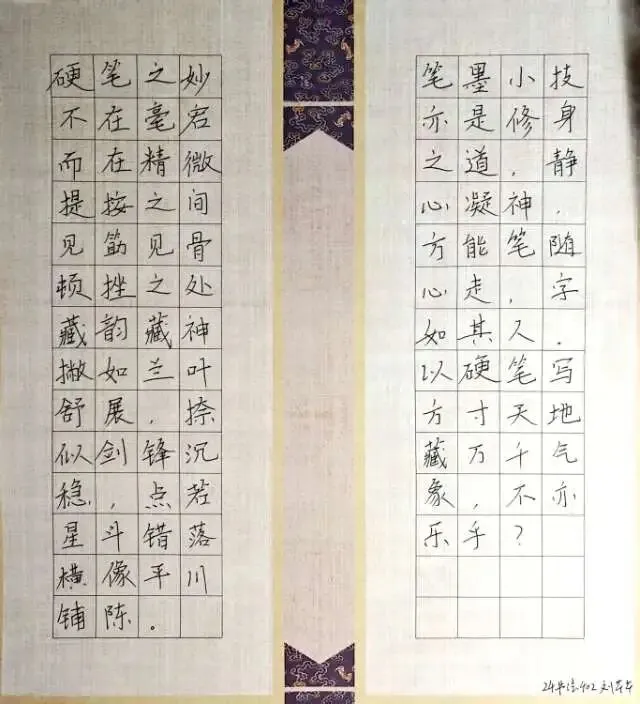 硬笔之妙
不在毫
而在精微
提按之间
见筋见骨
顿挫之处
藏韵藏神
撇如兰叶
舒展，捺
似剑锋沉
稳，点若
星斗错落
横像平川
铺陈。
笔墨小技
亦是修身
之道，静
心凝神，
方能笔随
心走，字
如其人．
以硬笔写
方寸天地
藏万千气
象，不亦
乐乎？